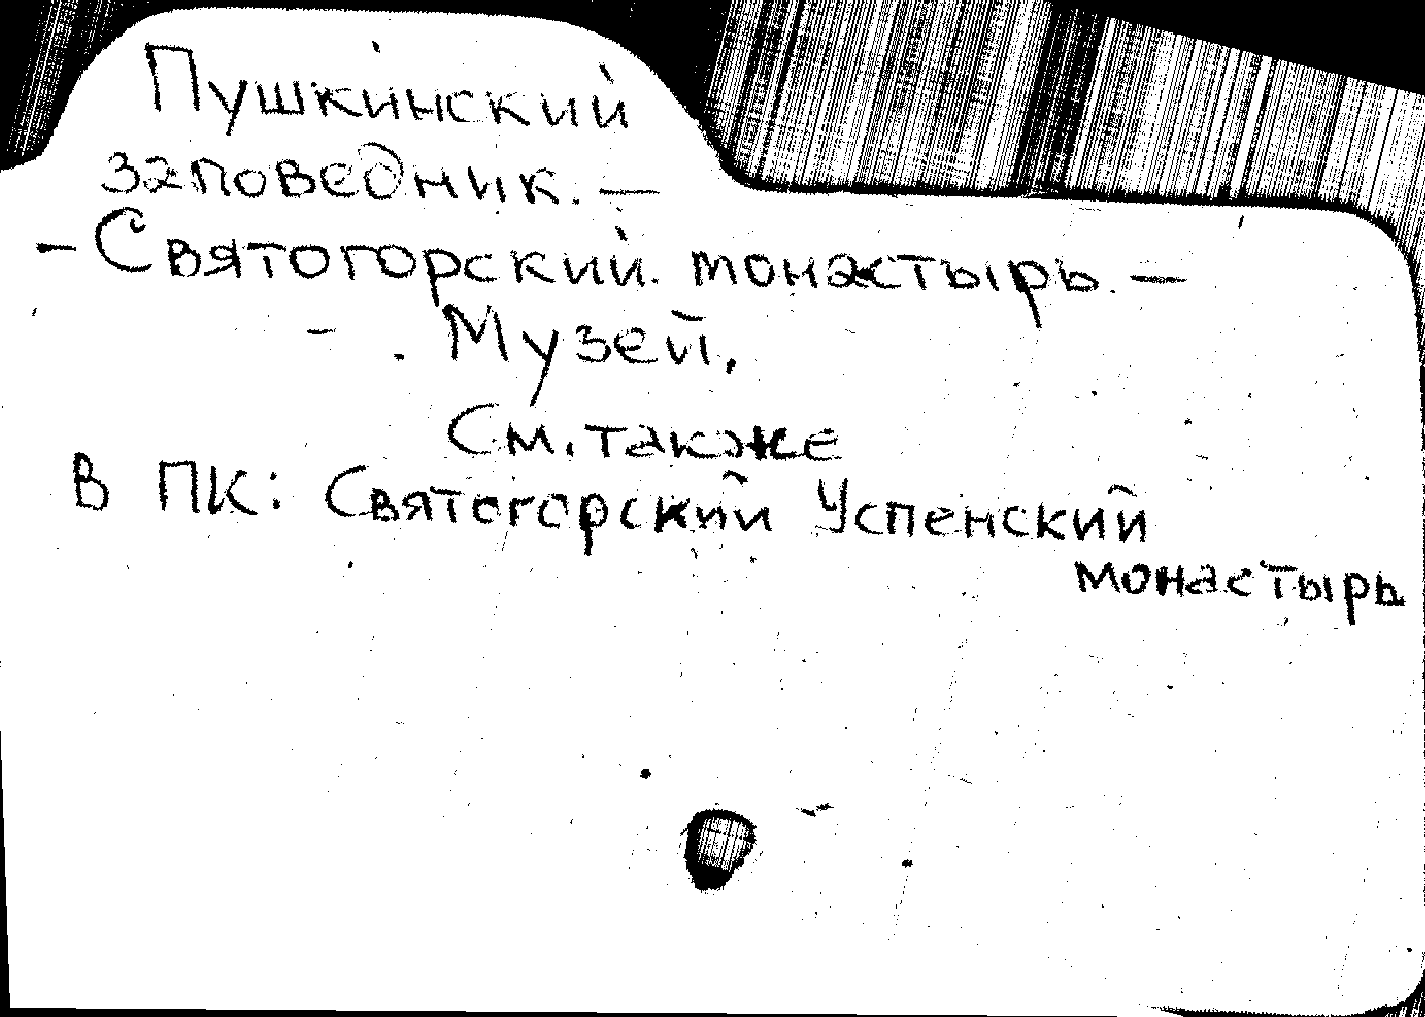 Пушкинский
заповедник. —
— Святогорский монастырь. —
— . Музей.
См. также
в ПК: Святогорский Успенский
монастырь